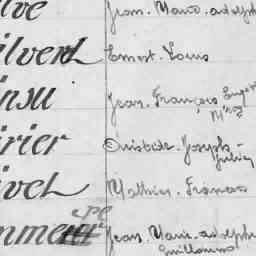 lve Jean. Marie. adolph
ilvent Ernest. Louis
insu Jean. François Eugè
Mie
irier Aristide. Joseph-
Julien
ivet Mathieu. Francois
nment Jean. Marie. adolphe
Guillaume